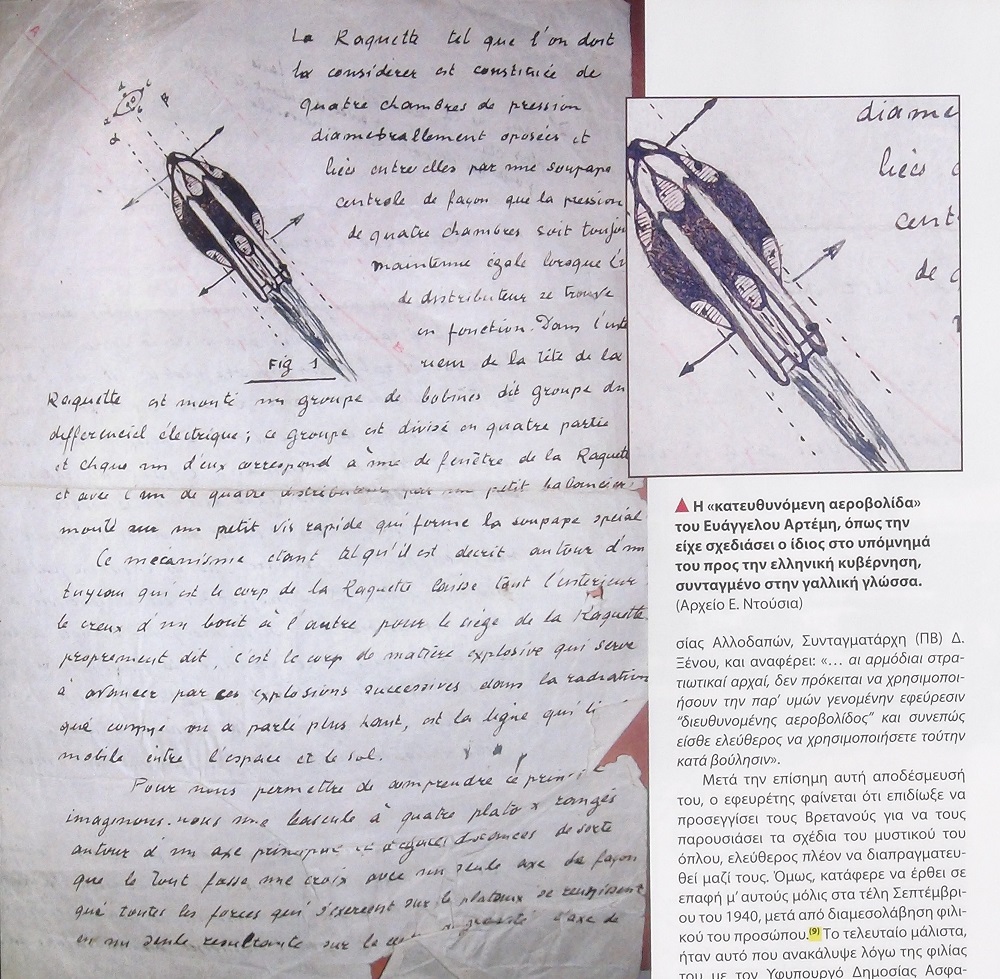 La Raquette tel que l'on doit
la considérer est constituée de
quatre chambres de pression
diametrallement oposées et
liées entre elles par une soupape
centrale de façon que la pression
de quatre chambres soit toujou
maintenue égale lorsque l'
de distributeur se trouve
en fonction. Dans l'inte
rieur de la tête de la
Fig 1
Raquette est monté un groupe de bobines dit groupe du
differenciel électrique; ce groupe est divisé en quatre partie
et chque un d'eux correspond à une de fenêtre de la Raquett
et avec l'un de quatre distributeur par un petit balancier
monté sur un petit vis rapide qui forme la soupape spécial
Ce mécanisme etant tel qu'il est decrit autour d'un
tuyeau qui est le corp de la Raquette laisse tout l'interieur
le creux d'un bout à l'autre pour le siège de la Raquette
proprement dit, c'est le corp de matière explosive qui serve
à avancer par ces explosions successives dans la radiation
qué comme on a parlé plus haut, est la ligne qui
mobile entre l'espace et le sol.
Pour nous permettre de comprendre ce prin
imaginons-nous une bascule à quatre platox rangés
autour d'un axe principal et d'egales distances de sorte
que le tout fasse une croix avec un seule axe de façon
qué toutes les forces qui s'exercent sur le plateaux se reunissent
en un seule resultante sur le d'axe de
diame
liées
cent
de
Η «κατευθυνόμενη αεροβολίδα»
του Ευάγγελου Αρτέμη, όπως την
είχε σχεδιάσει ο ίδιος στο υπόμνημά
του προς την ελληνική κυβέρνηση,
συνταγμένο στην γαλλική γλώσσα.
(Αρχείο Ε. Ντούσια)
σίας Αλλοδαπών, Συνταγματάρχη (ΠΒ) Δ.
Ξένου, και αναφέρει: «... αι αρμόδιαι στρα-
τιωτικαί αρχαί, δεν πρόκειται να χρησιμοποι-
ήσουν την παρ' υμών γενομένην εφεύρεσιν
"διευθυνομένης αεροβολίδος" και συνεπώς
είσθε ελεύθερος να χρησιμοποιήσετε τούτην
κατά βούλησιν».
Μετά την επίσημη αυτή αποδέσμευσή
του, ο εφευρέτης φαίνεται ότι επιδίωξε να
προσεγγίσει τους Βρετανούς για να τους
παρουσιάσει τα σχέδια του μυστικού του
όπλου, ελεύθερος πλέον να διαπραγματευ-
θεί μαζί τους. Όμως, κατάφερε να έρθει σε
επαφή μ' αυτούς μόλις στα τέλη Σεπτέμβρι-
ου του 1940, μετά από διαμεσολάβηση φιλι-
κού του προσώπου.(9) Το τελευταίο μάλιστα,
ήταν αυτό που ανακάλυψε λόγω της φιλίας
του με τον Υφυπουργό Δημοσίας Ασφα-